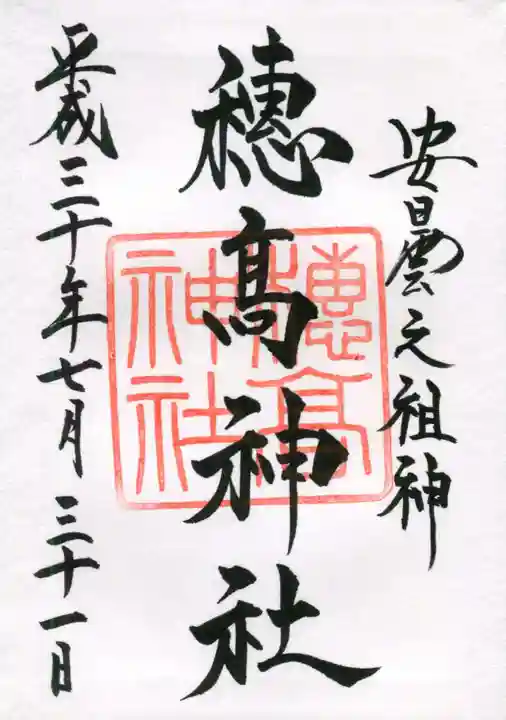 安曇之祖神
穂髙神社
穂高神社
平成三十年七月三十一日